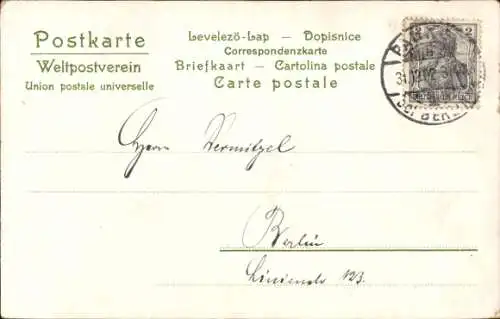 Postkarte
Weltpostverein
Union postale universelle
Levelezö-Lap – Dopisnice
Correspondenzkarte
Briefkaart – Cartolina postale
Carte postale
2
Herrn Vermitzel
Berlin
Linienstr 123.